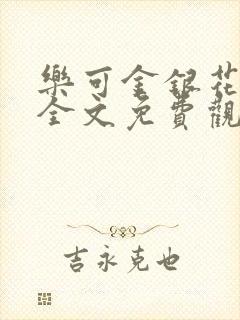 樂可金銀花
全文免費觀
吉永克也